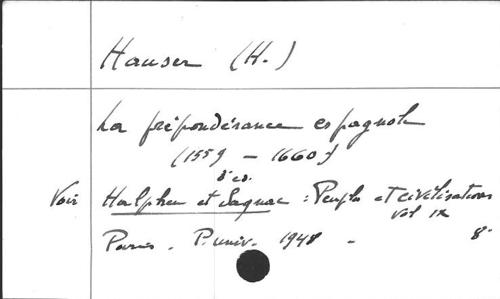 Hauser (H.)
La prépondérance espagnole
(1559 - 1660)
3e éd.
Voir Halphen et Sagnac : Peuples et civilisations
vol IX
Paris. P. univ. 1948 - 8°